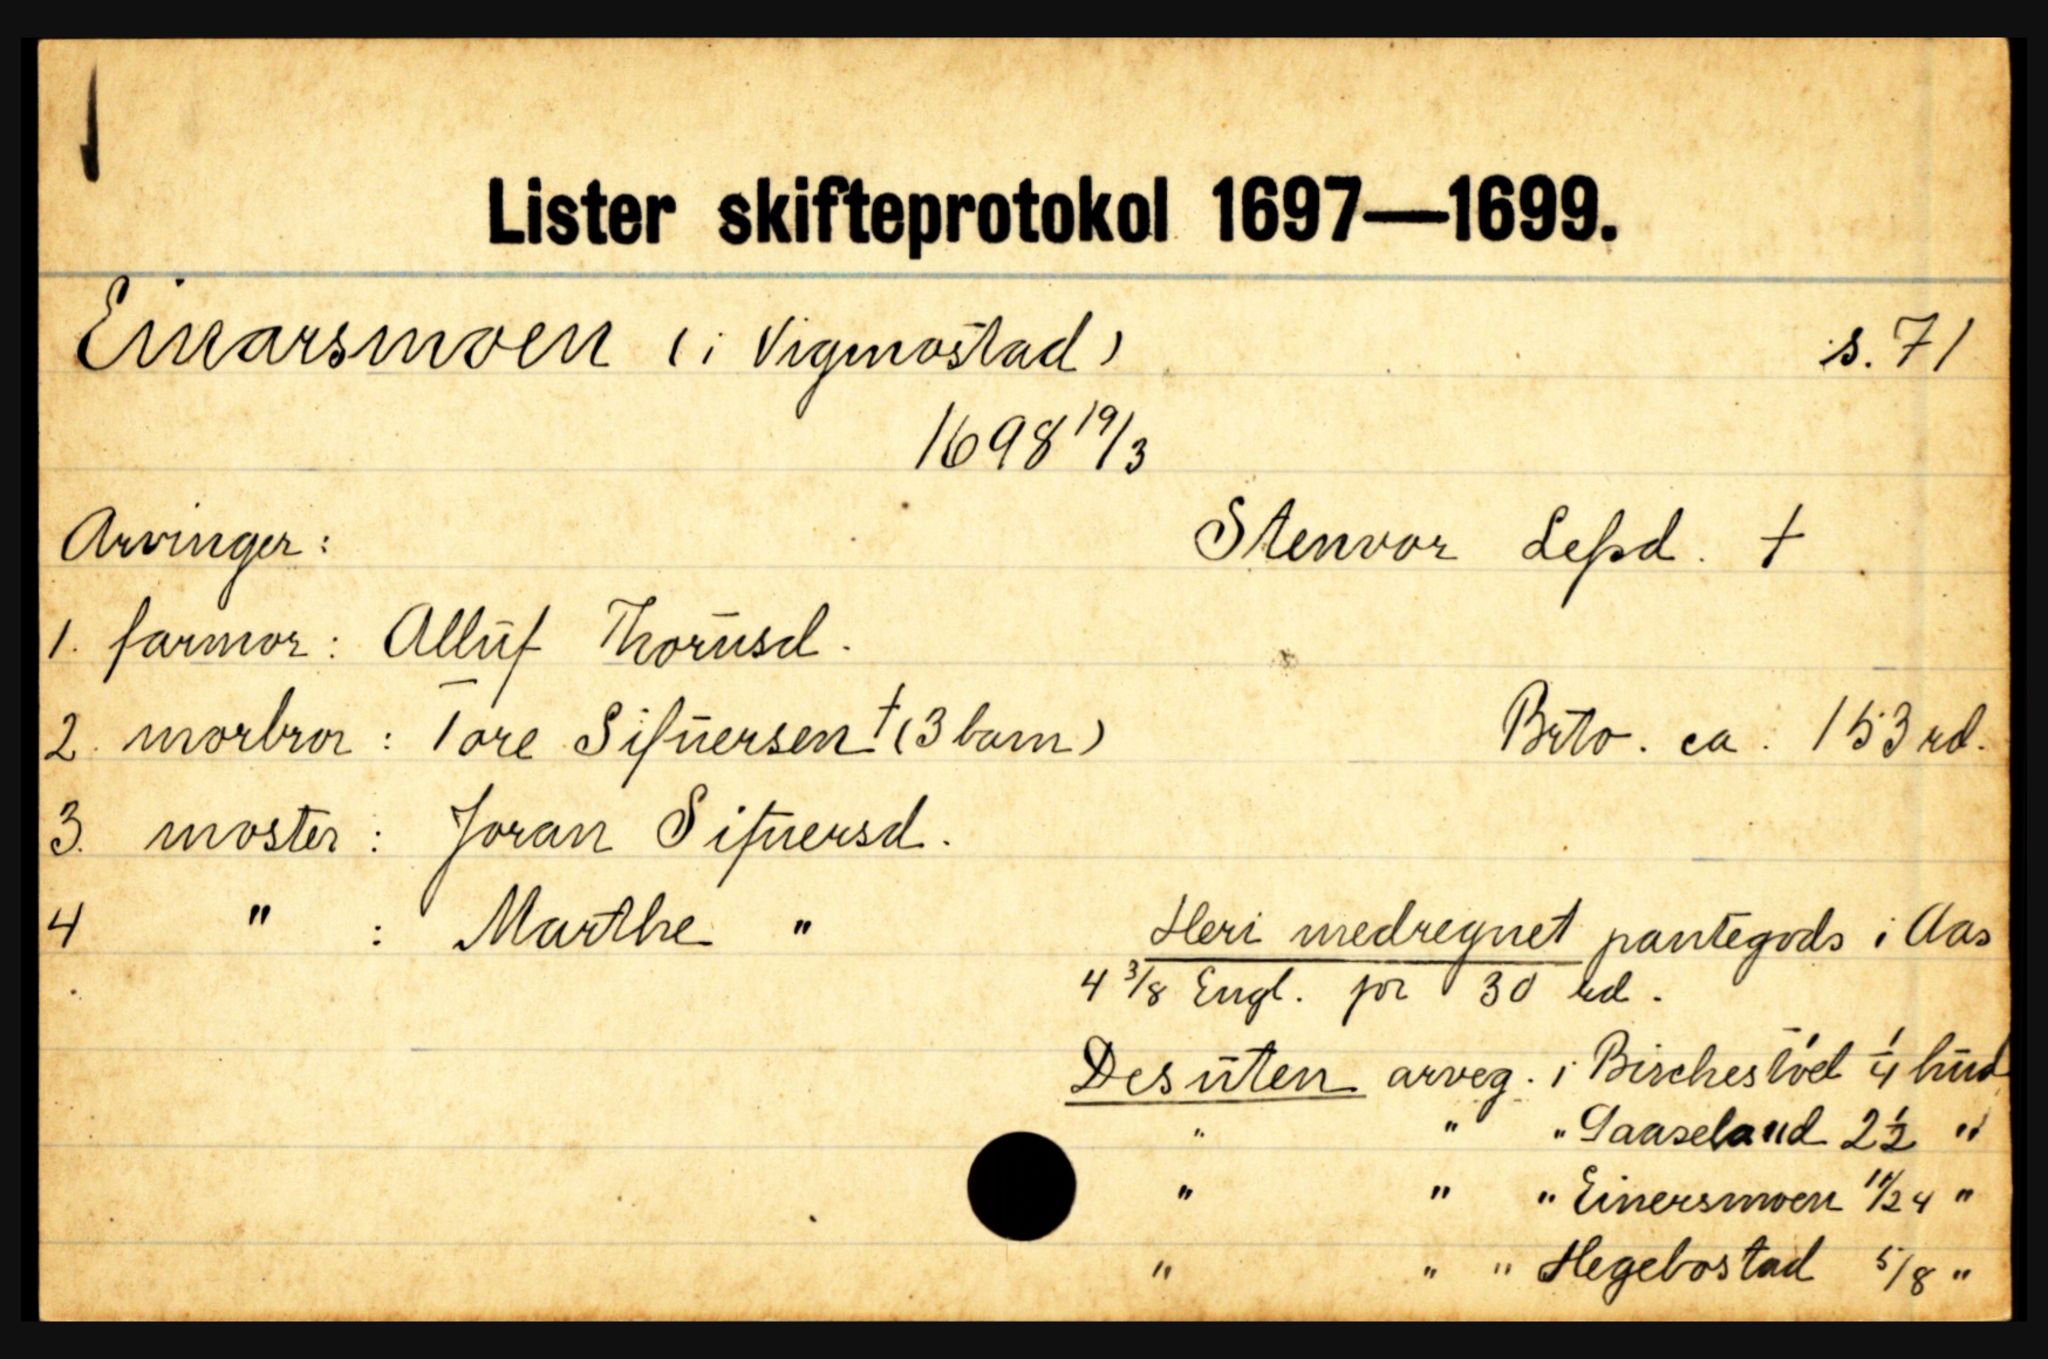 Lister skifteprotokol 1697—1699.
Einarsmoen (i Vigmostad) s. 71
1698 19/3
Arvinger: Stenvor Lefsd. †
1. farmor: Alluf Thorusd.
2. morbror: Tore Sifuersen † (3 barn) Brto. ca. 153 rd.
3. moster: Joran Sifuersd.
4 " : Marthe "
Heri medregnet pantegods i Aas
4 3/8 Engl. for 30 rd.
Desuten arveg. i Birchestöd 1/4 hud
" " " Gaaseland 2 1/2 "
" " " Einersmoen 11/24 "
" " " Hegebostad 5/8 "